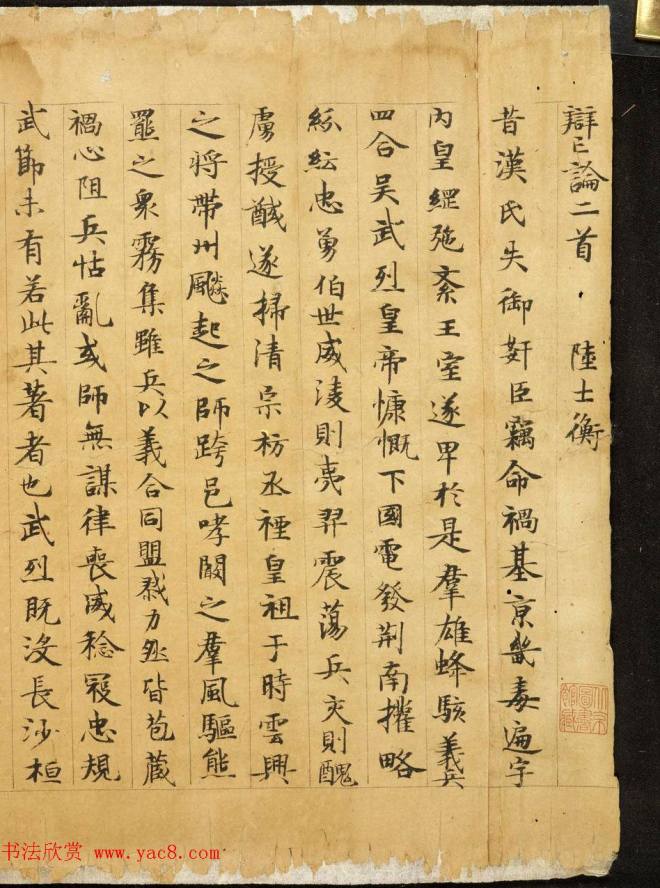 辯亡論二首 陸士衡
昔漢氏失御奸臣竊命禍基京畿毒遍宇
內皇綱弛紊王室遂卑於是羣雄蜂駭義兵
四合吳武烈皇帝慷慨下國電發荆南權略
紛紜忠勇伯世威淩則夷羿震蕩兵交則醜
虜授馘遂掃清宗祊丞禋皇祖于時雲興
之將帶州飈起之師跨邑哮闞之羣風驅熊
羆之衆霧集雖兵以義合同盟勠力然皆苞藏
禍心阻兵怙亂或師無謀律喪威稔寇忠規
武節未有若此其著者也武烈既没長沙桓
书法欣赏 www.yac8.com